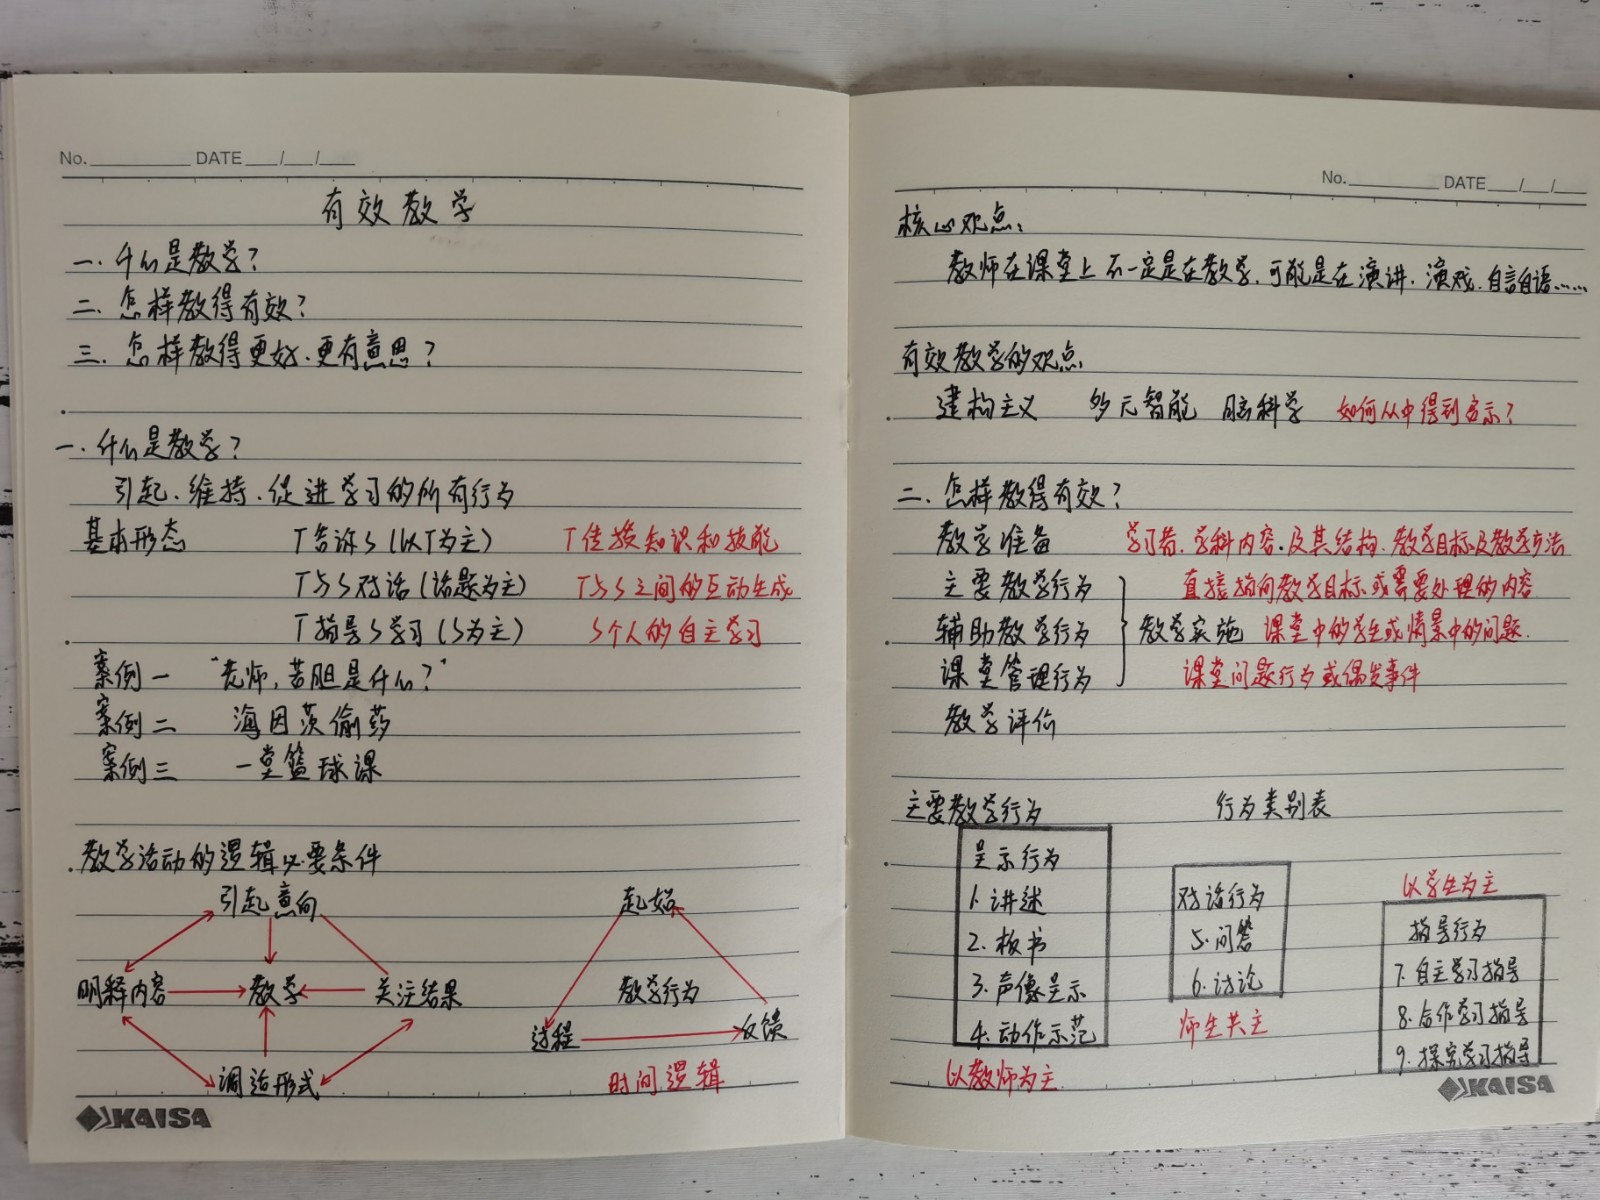 No. DATE / /
有效教学
一. 什么是教学?
二. 怎样教得有效?
三. 怎样教得更好.更有意思?
一. 什么是教学?
引起.维持.促进学习的所有行为
基本形态 T告诉S(以T为主) T传授知识和技能
T与S对话(话题为主) T与S之间的互动生成
T指导S学习(S为主) S个人的自主学习
案例一 "老师,苦胆是什么?"
案例二 海因茨偷药
案例三 一堂篮球课
教学活动的逻辑必要条件
引起意向
明释内容 教学 关注结果
调适形式
起始
教学行为
过程 反馈
时间逻辑
KAISA
No. DATE / /
核心观点:
教师在课堂上不一定是在教学.可能是在演讲.演戏.自言自语……
有效教学的观点
建构主义 多元智能 脑科学 如何从中得到启示?
二. 怎样教得有效?
教学准备 学习者.学科内容.及其结构.教学目标及教学方法
主要教学行为 直接指向教学目标或需要处理的内容
辅助教学行为 教学实施 课堂中的学生或情景中的问题.
课堂管理行为 课堂问题行为或偶发事件
教学评价
主要教学行为 行为类别表
呈示行为
1.讲述
2.板书
3.声像呈示
4.动作示范
以教师为主
对话行为
5.问答
6.讨论
师生共主
以学生为主
指导行为
7.自主学习指导
8.合作学习指导
9.探究学习指导
KAISA